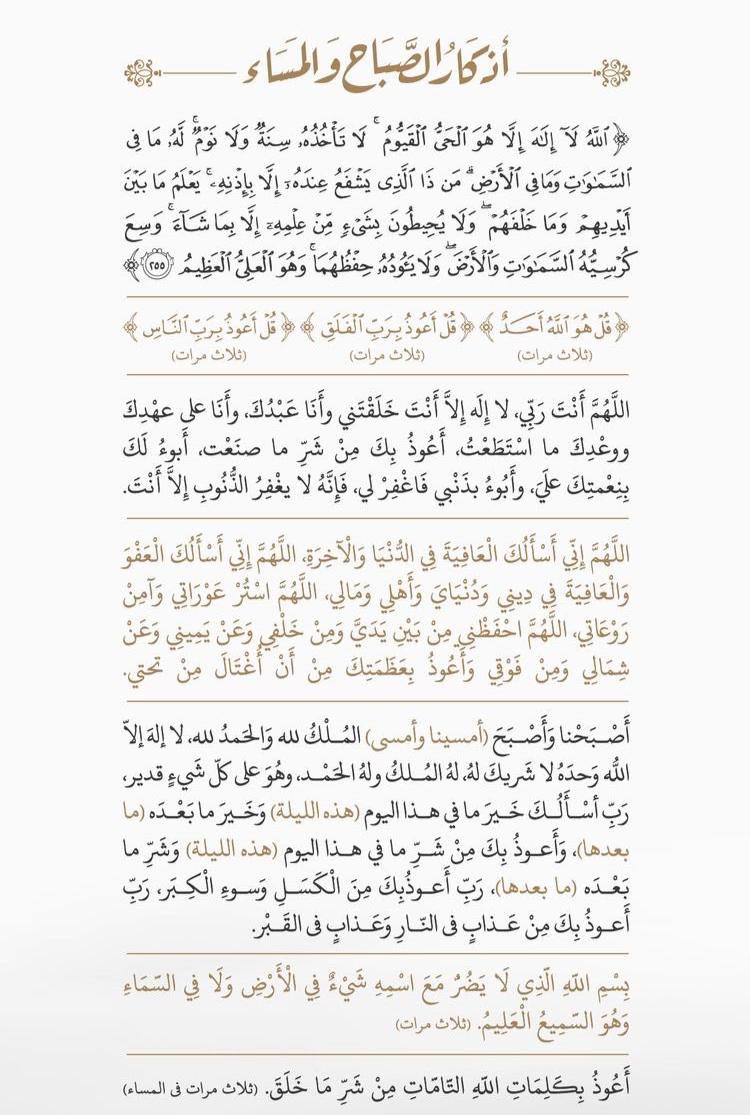 أذكار الصَّبَاح وَالمَسَاء
﴿ ٱللَّهُ لَآ إِلَٰهَ إِلَّا هُوَ ٱلْحَىُّ ٱلْقَيُّومُ ۚ لَا تَأْخُذُهُۥ سِنَةٌ وَلَا نَوْمٌ ۚ لَّهُۥ مَا فِى
ٱلسَّمَٰوَٰتِ وَمَا فِى ٱلْأَرْضِ ۗ مَن ذَا ٱلَّذِى يَشْفَعُ عِندَهُۥٓ إِلَّا بِإِذْنِهِۦ ۚ يَعْلَمُ مَا بَيْنَ
أَيْدِيهِمْ وَمَا خَلْفَهُمْ ۖ وَلَا يُحِيطُونَ بِشَىْءٍ مِّنْ عِلْمِهِۦٓ إِلَّا بِمَا شَآءَ ۚ وَسِعَ
كُرْسِيُّهُ ٱلسَّمَٰوَٰتِ وَٱلْأَرْضَ ۖ وَلَا يَـُٔودُهُۥ حِفْظُهُمَا ۚ وَهُوَ ٱلْعَلِىُّ ٱلْعَظِيمُ ٢٥٥ ﴾
﴿ قُلْ هُوَ ٱللَّهُ أَحَدٌ ﴾ ﴿ قُلْ أَعُوذُ بِرَبِّ ٱلْفَلَقِ ﴾ ﴿ قُلْ أَعُوذُ بِرَبِّ ٱلنَّاسِ ﴾
(ثلاث مرات) (ثلاث مرات) (ثلاث مرات)
اللَّهُمَّ أَنْتَ رَبِّي، لا إِلَه إِلاَّ أَنْتَ خَلَقْتَني وأَنَا عَبْدُكَ، وأَنَا على عهْدِكَ
ووعْدِكَ ما اسْتَطَعْتُ، أَعُوذُ بِكَ مِنْ شَرِّ ما صنَعْت، أَبوءُ لَكَ
بِنِعْمتِكَ علَيَ، وأَبُوءُ بذَنْبي فَاغْفِرْ لي، فَإِنَّهُ لا يغْفِرُ الذُّنُوبِ إِلاَّ أَنْتَ.
اللَّهُمَّ إِنِّي أَسْأَلُكَ الْعَافِيَةَ فِي الدُّنْيَا وَالْآخِرَةِ، اللَّهُمَّ إِنِّي أَسْأَلُكَ الْعَفْوَ
وَالْعَافِيَةَ فِي دِينِي وَدُنْيَايَ وَأَهْلِي وَمَالِي، اللَّهُمَّ اسْتُرْ عَوْرَاتِي وَآمِنْ
رَوْعَاتِي، اللَّهُمَّ احْفَظْنِي مِنْ بَيْنِ يَدَيَّ وَمِنْ خَلْفِي وَعَنْ يَمِينِي وَعَنْ
شِمَالِي وَمِنْ فَوْقِي وَأَعُوذُ بِعَظَمَتِكَ مِنْ أَنْ أُغْتَالَ مِنْ تحتي.
أَصْـبَحْنا وَأَصْـبَحَ (أمسينا وأمسى) المُلْكُ لله وَالحَمدُ لله، لا إلهَ إلاّ
اللّه وَحدَهُ لا شريكَ لهُ، لهُ المُـلكُ ولهُ الحَمْـد، وهُوَ على كلّ شَيءٍ قدير،
رَبِّ أسْـأَلُـكَ خَـيرَ ما في هـذا اليوم (هذه الليلة) وَخَـيرَ ما بَعْـدَه (ما
بعدها)، وَأَعـوذُ بِكَ مِنْ شَـرِّ ما في هـذا اليوم (هذه الليلة) وَشَرِّ ما
بَعْـدَه (ما بعدها)، رَبِّ أَعـوذُبِكَ مِنَ الْكَسَـلِ وَسـوءِ الْكِبَـر، رَبِّ
أَعـوذُ بِكَ مِنْ عَـذابٍ في النّـارِ وَعَـذابٍ في القَـبْر.
بِسْمِ اللّهِ الَّذِي لَا يَضُرُّ مَعَ اسْمِهِ شَيْءٌ فِي الْأَرْضِ وَلَا فِي السَّمَاءِ
وَهُوَ السَّمِيعُ الْعَلِيمُ. (ثلاث مرات)
أَعُوذُ بِكَلِمَاتِ اللّهِ التَّامَّاتِ مِنْ شَرِّ مَا خَلَقَ. (ثلاث مرات فى المساء)